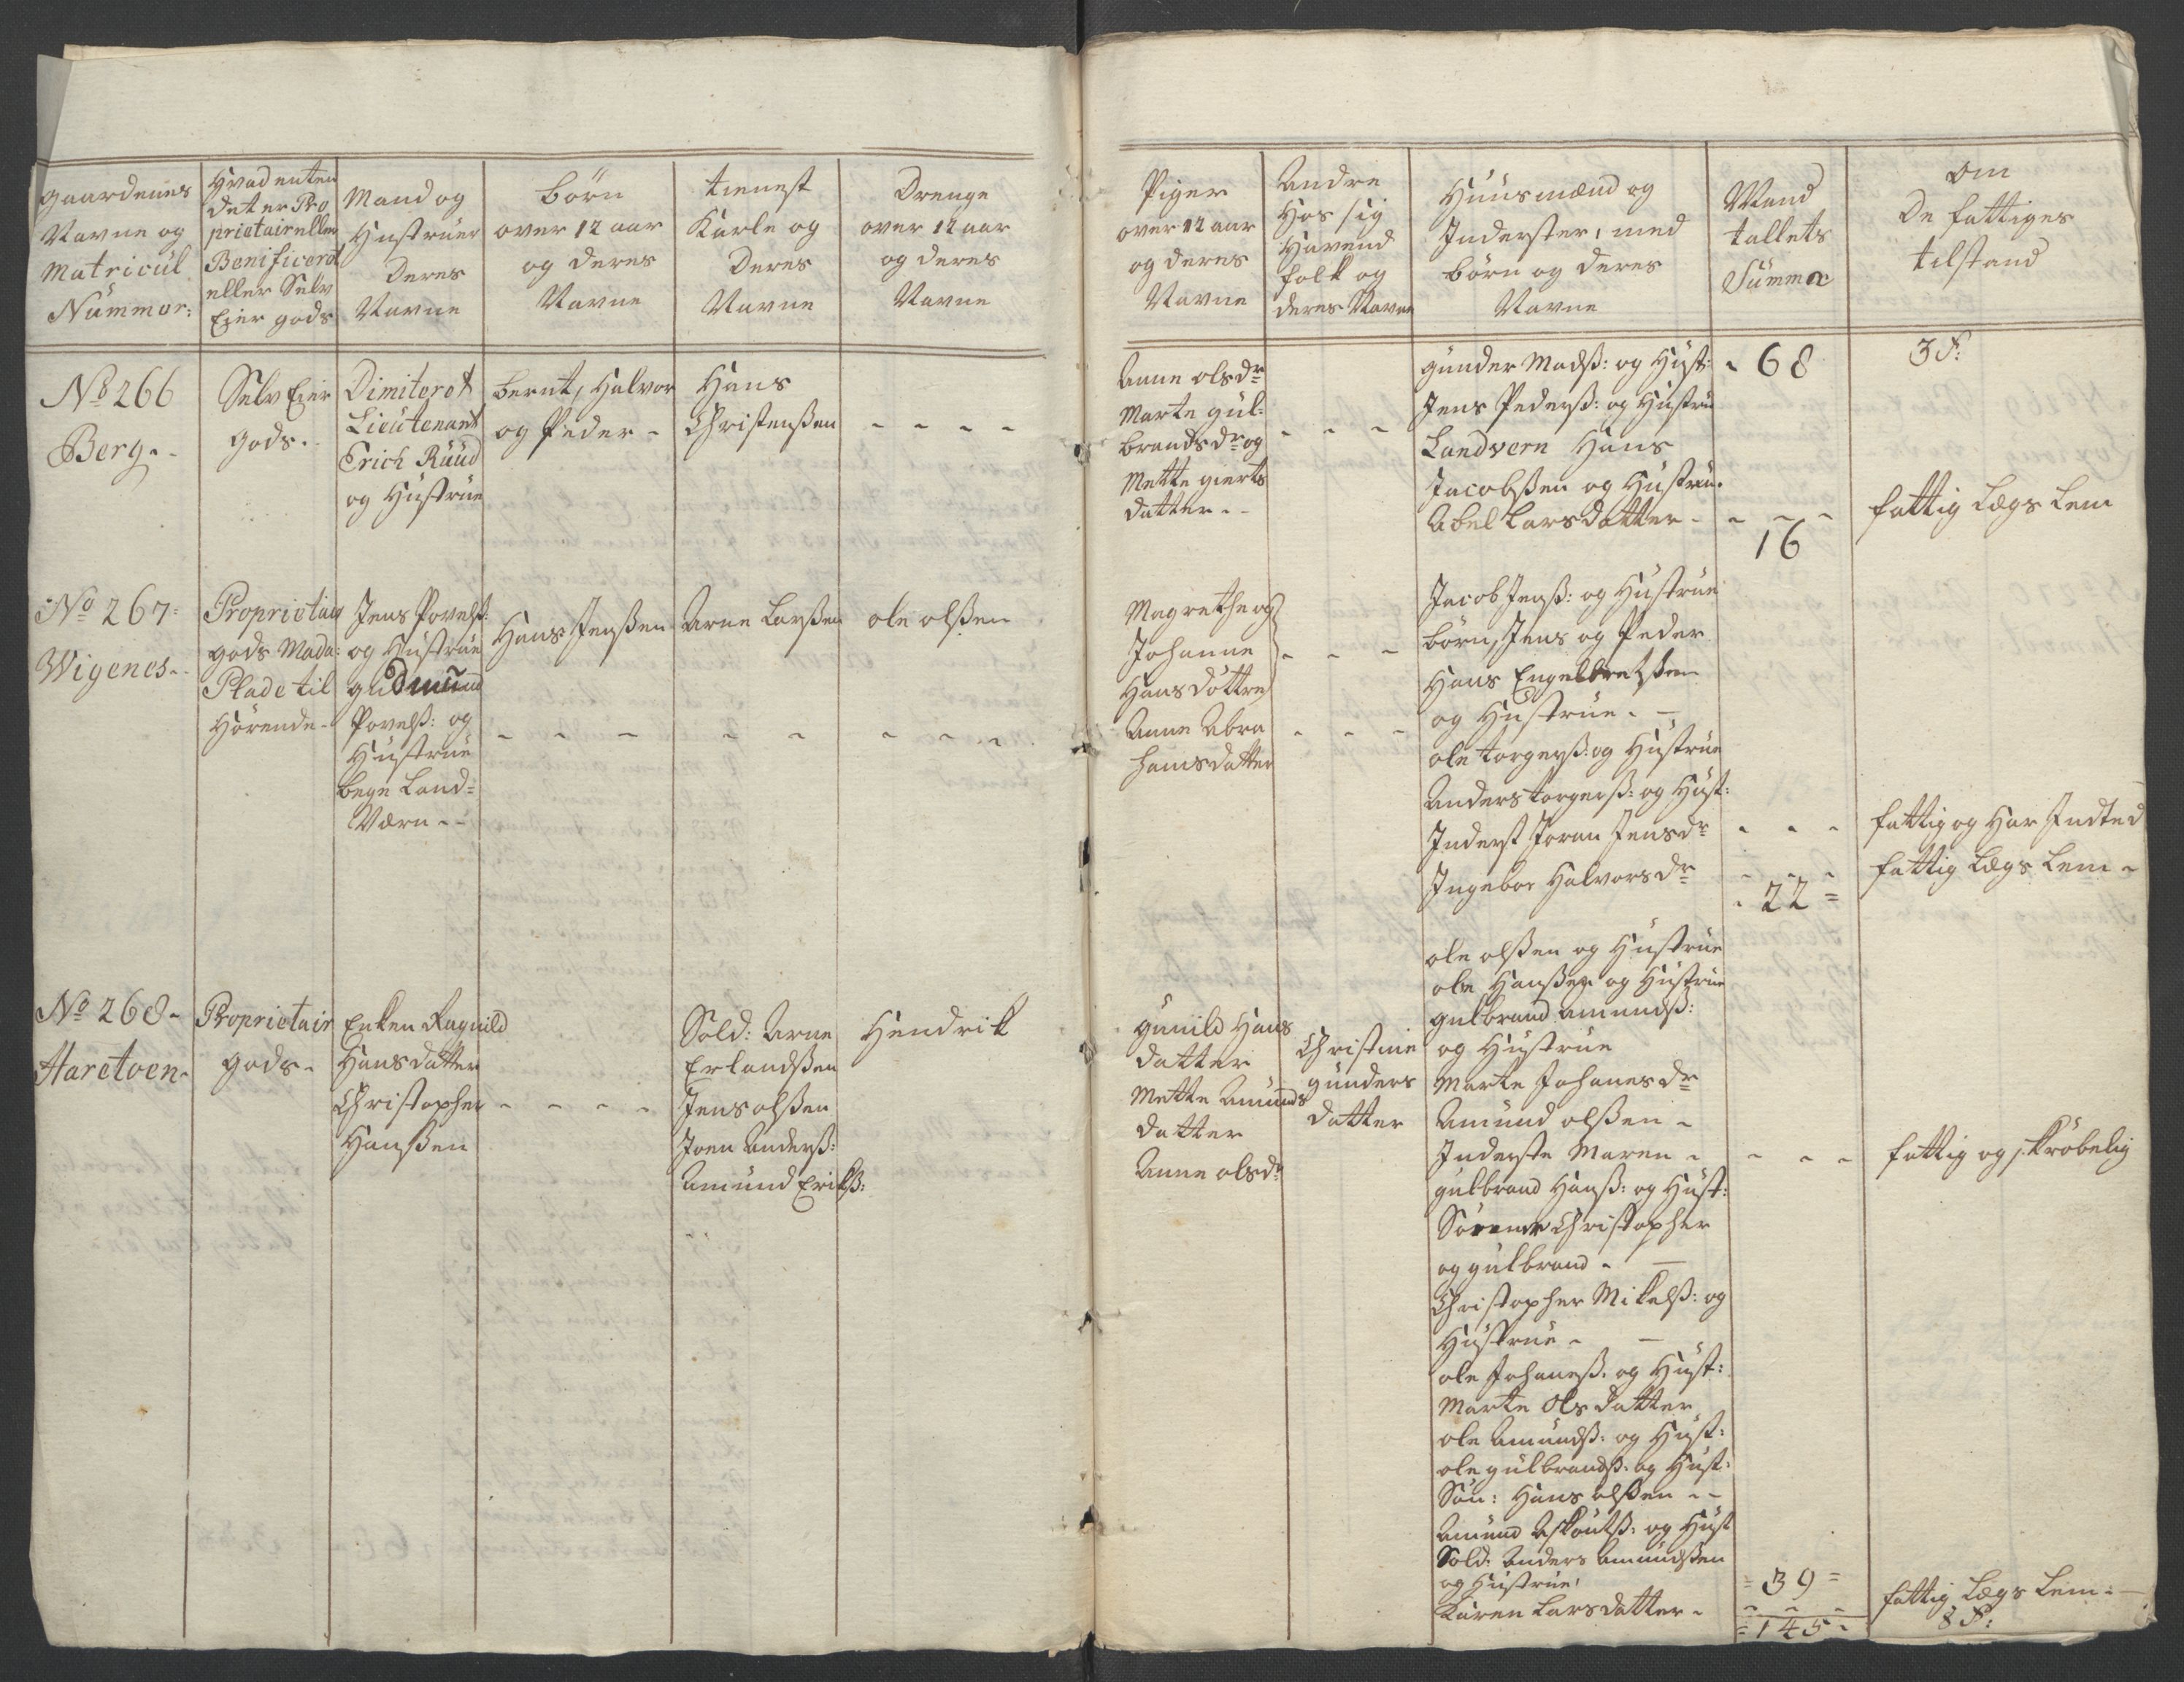 Gaardenes
Navne og
Matricul
Nummer:
Hvad enten
det er Pro
prietair eller
Benificeret
eller Selv
Eier gods
Mand og
Hustruer
Deres
Navne
Børn
over 12 aar
og deres
Navne
tienest
Karle og
Deres
Navne
Drenge
over 12 aar
og deres
Navne
Piger
over 12 aar
og deres
Navne
Andre
Hos sig
Havend
folk og
deres Navne
Huusmænd og
Inderster, med
børn og deres
Navne
Mand
tallets
Summa
om
De fattiges
tilstand
No 266
Berg..
Selv Eier
gods..
Dimiteret
Lieutenant
Erich Ruud
og Hustrue
bernt, Halvor
og Peder -
Hans
Christenßen
- - - -
Anne olsdr
Marte gul-
brandsdr og
Mette gierts
datter..
- - -
gunder Madß: og Hust:
Jens Pederß: og Hustru
Landvern Hans
Jacobßen og Hustru.
Abel Larsdatter -
- 68
3 P:
- - -
16
fattig Lægs Lem
No 267:
Wigenes..
Proprietair
gods Mada:
Plade til
Hørende -
Jens Povelß:
og Hustrue
gudmund
Povelß: og
Hustrue
bege Land-
Værn..
Hans Jenßen
Arne Larßen
ole olßen
- - - - - - - -
Magrethe og
Johanne
Hans døttre
Anne Abra
hamsdatter
- - -
- - -
Jacob Jenß: og Hustrue
børn, Jens og Peder
Hans Engelbretßen
og Hustrue. -
ole torgerß: og Hustrue
Anders torgerß: og Hust:
Inderst Joran Jensdr
Ingebor Halvorsdr
- - -
- - -
- 22 =
fattig og Har Indted
fattig Lægs Lem -
No 268-
Haretoen-
Proprietair
gods-
Enken Ragnild
Hansdatter
Christopher
Hanßen
- - - -
Sold: Arne
Erlandßen
Jens olßen
Joen Anderß:
Amund Erikß:
Hendrik
gunild Hans
datter
Mette Amunds
datter
Anne olsdr
Christine
gunders
datter
ole olßen og Hustrue
ole Hanßen og Hustrue
gulbrand Amundß:
og Hustrue
Marte Johanesdr
Amund olßen -
Inderste Maren -
gulbrand Hanß: og Hust:
Sønner Christopher
og gulbrand - -
Christopher Mikelß: og
Hustrue - -
ole Johaneß: og Hust:
Marte Olsdatter
ole Amundß: og Hust:
ole gulbrandß: og Hust:
Søn: Hans olßen --
Amund Askoutß: og Hust
Sold: Anders Amundßen
og Hustrue,
Karen Larsdatter -
- - -
fattig og skrøbelig
= 39 =
- - -
= 145 -
fattig Lægs Lem: -
8 P: